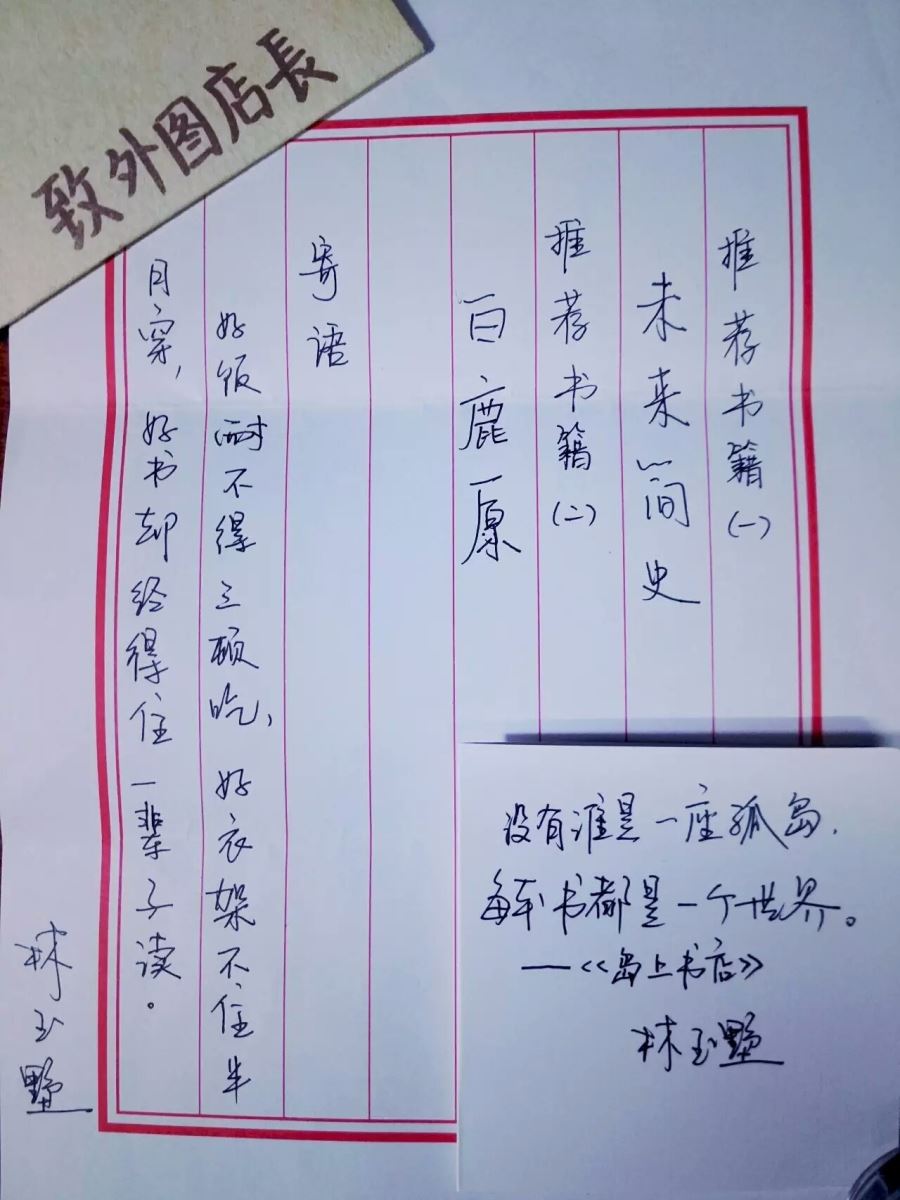 致外图店長
推荐书籍(一)
未来简史
推荐书籍(二)
白鹿原
寄语
好饭耐不得三顿吃,好衣架不住半
月穿,好书却经得住一辈子读。
林玉墅
没有谁是一座孤岛,
每本书都是一个世界。
——《岛上书店》
林玉墅